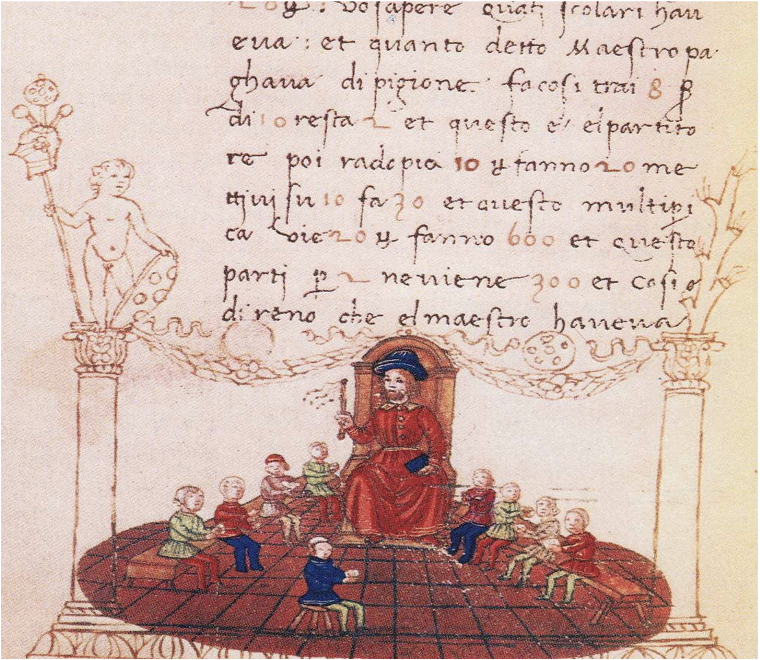 20 ꝶ : Vo sapere quati scolari hau
eva : et quanto detto Maestro pa
ghava di pigione. fa cosi trai 8 ꝑ
di 10 resta 2 et questo e' el partito
re poi radopia 10 ꝶ fanno 20 me
ttivi su 10 fa 30 et questo multipi
ca vie 20 ꝶ fanno 600 et questo
parti ꝑ 2 neviene 300 et cosi
direno che el maestro haveva